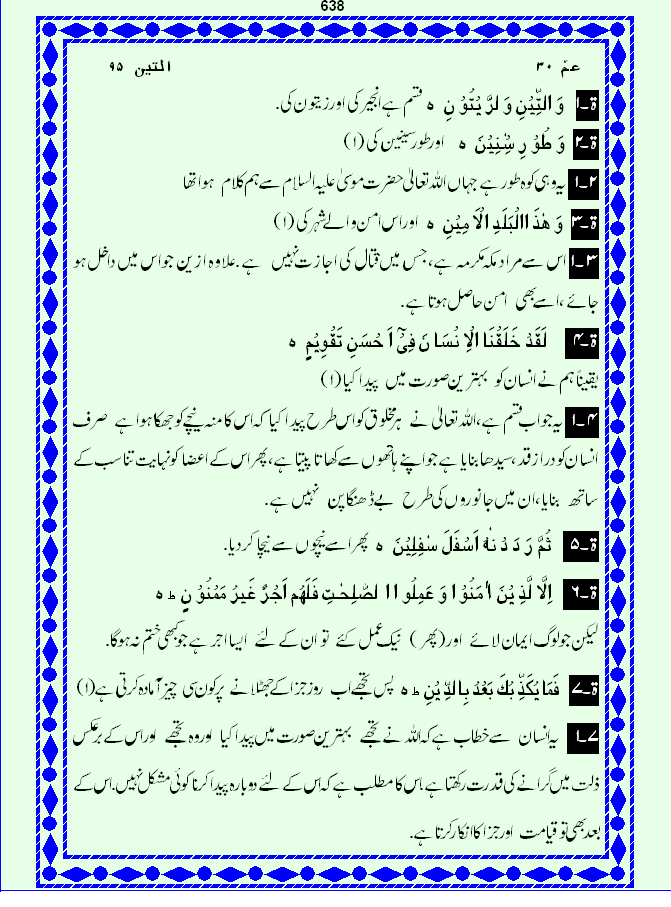 638
عمّ ۳۰ التین ۹۵
ة۔۱ وَ التِّیْنِ وَ لزَّیْتُوْ نِ ہ قسم ہے انجیر کی اور زیتون کی۔
ة۔۲ وَ طُوْ رِ سِیْنِیْنَ ہ اور طور سینین کی (۱)
۲۔۱ یہ وہی کوہ طور ہے جہاں اللہ تعالیٰ حضرت موسیٰ علیہ السلام سے ہم کلام ہوا تھا
ة۔۳ وَ ھٰذَ االْبَلَدِ الْاَ مِیْنِ ہ اور اس امن والے شہر کی (۱)
۳۔۱ اس سے مراد مکہ مکرمہ ہے، جس میں قتال کی اجازت نہیں ہے۔ علاوہ ازین جو اس میں داخل ہو
جائے، اسے بھی امن حاصل ہوتا ہے۔
ة۔۴ لَقَدْ خَلَقْنَا الْاِ نْسَا نَ فِیْٓ اَ حْسَنِ تَقْوِیْمٍ ہ
یقیناً ہم نے انسان کو بہترین صورت میں پیدا کیا (۱)
۴۔۱ یہ جواب قسم ہے، اللہ تعالیٰ نے ہر مخلوق کو اس طرح پیدا کیا کہ اس کا منہ نیچے کو جھکا ہوا ہے صرف
انسان کو دراز قد، سیدھا بنایا ہے جو اپنے ہاتھوں سے کھاتا پیتا ہے، پھر اس کے اعضا کو نہایت تناسب کے
ساتھ بنایا، ان میں جانوروں کی طرح بےڈھنگا پن نہیں ہے۔
ة۔۵ ثُمَّ رَ دَ دْ نٰهُ اَ سْفَلَ سٰفِلِیْنَ ہ پھر اسے نیچوں سے نیچا کر دیا۔
ة۔۶ اِلَّا لَّذِ یْنَ اٰ مَنُوْ ا وَ عَمِلُو ا ا لصّٰلِحٰتِ فَلَھُمْ اَجْرٌ غَیْرُ مَمْنُوْ نٍ ط ہ
لیکن جو لوگ ایمان لائے اور (پھر ) نیک عمل کئے تو ان کے لئے ایسا اجر ہے جو کبھی ختم نہ ہوگا۔
ة۔۷ فَمَا یُکَذِّ بُكَ بَعْدُ بِا لدِّ یْنِ ط ہ پس تجھے اب روز جزا کے جھٹلانے پر کون سی چیز آمادہ کرتی ہے (۱)
۷۔۱ یہ انسان سے خطاب ہے کہ اللہ نے تجھے بہترین صورت میں پیدا کیا اور وہ تجھے اور اس کے برعکس
ذلت میں گرانے کی قدرت رکھتا ہے۔ اس کا مطلب ہے کہ اس کے لئے دوبارہ پیدا کرنا کوئی مشکل نہیں۔ اس کے
بعد بھی تو قیامت اور جزا کا انکار کرتا ہے۔